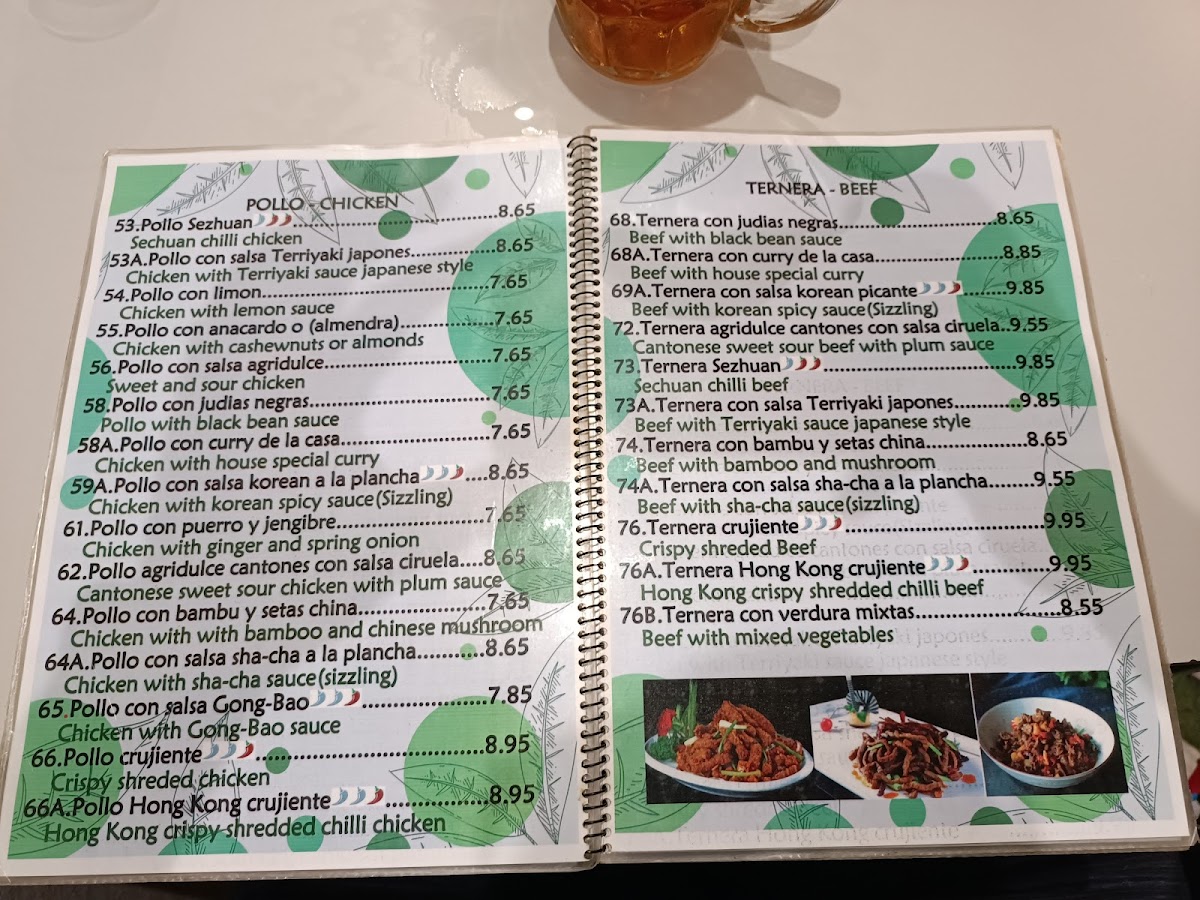 POLLO - CHICKEN
53.Pollo Sezhuan..............................8.65
Sechuan chilli chicken
53A.Pollo con salsa Terriyaki japones............8.65
Chicken with Terriyaki sauce japanese style
54.Pollo con limon.................................7.65
Chicken with lemon sauce
55.Pollo con anacardo o (almendra)..............7.65
Chicken with cashewnuts or almonds
56.Pollo con salsa agridulce........................7.65
Sweet and sour chicken
58.Pollo con judias negras..........................7.65
Pollo with black bean sauce
58A.Pollo con curry de la casa.....................7.65
Chicken with house special curry
59A.Pollo con salsa korean a la plancha....8.65
Chicken with korean spicy sauce(Sizzling)
61.Pollo con puerro y jengibre.....................7.65
Chicken with ginger and spring onion
62.Pollo agridulce cantones con salsa ciruela....8.65
Cantonese sweet sour chicken with plum sauce
64.Pollo con bambu y setas china..................7.65
Chicken with with bamboo and chinese mushroom
64A.Pollo con salsa sha-cha a la plancha...........8.65
Chicken with sha-cha sauce(sizzling)
65.Pollo con salsa Gong-Bao...................7.85
Chicken with Gong-Bao sauce
66.Pollo crujiente..............................8.95
Crispy shreded chicken
66A.Pollo Hong Kong crujiente...............8.95
Hong Kong crispy shredded chilli chicken
TERNERA - BEEF
68.Ternera con judias negras.......................8.65
Beef with black bean sauce
68A.Ternera con curry de la casa...................8.85
Beef with house special curry
69A.Ternera con salsa korean picante.......9.85
Beef with korean spicy sauce(Sizzling)
72.Ternera agridulce cantones con salsa ciruela..9.55
Cantonese sweet sour beef with plum sauce
73.Ternera Sezhuan..............................9.85
Sechuan chilli beef
73A.Ternera con salsa Terriyaki japones............9.85
Beef with Terriyaki sauce japanese style
74.Ternera con bambu y setas china.................8.65
Beef with bamboo and mushroom
74A.Ternera con salsa sha-cha a la plancha.......9.55
Beef with sha-cha sauce(sizzling)
76.Ternera crujiente.................................9.95
Crispy shreded Beef
76A.Ternera Hong Kong crujiente.............9.95
Hong Kong crispy shredded chilli beef
76B.Ternera con verdura mixtas.....................8.55
Beef with mixed vegetables